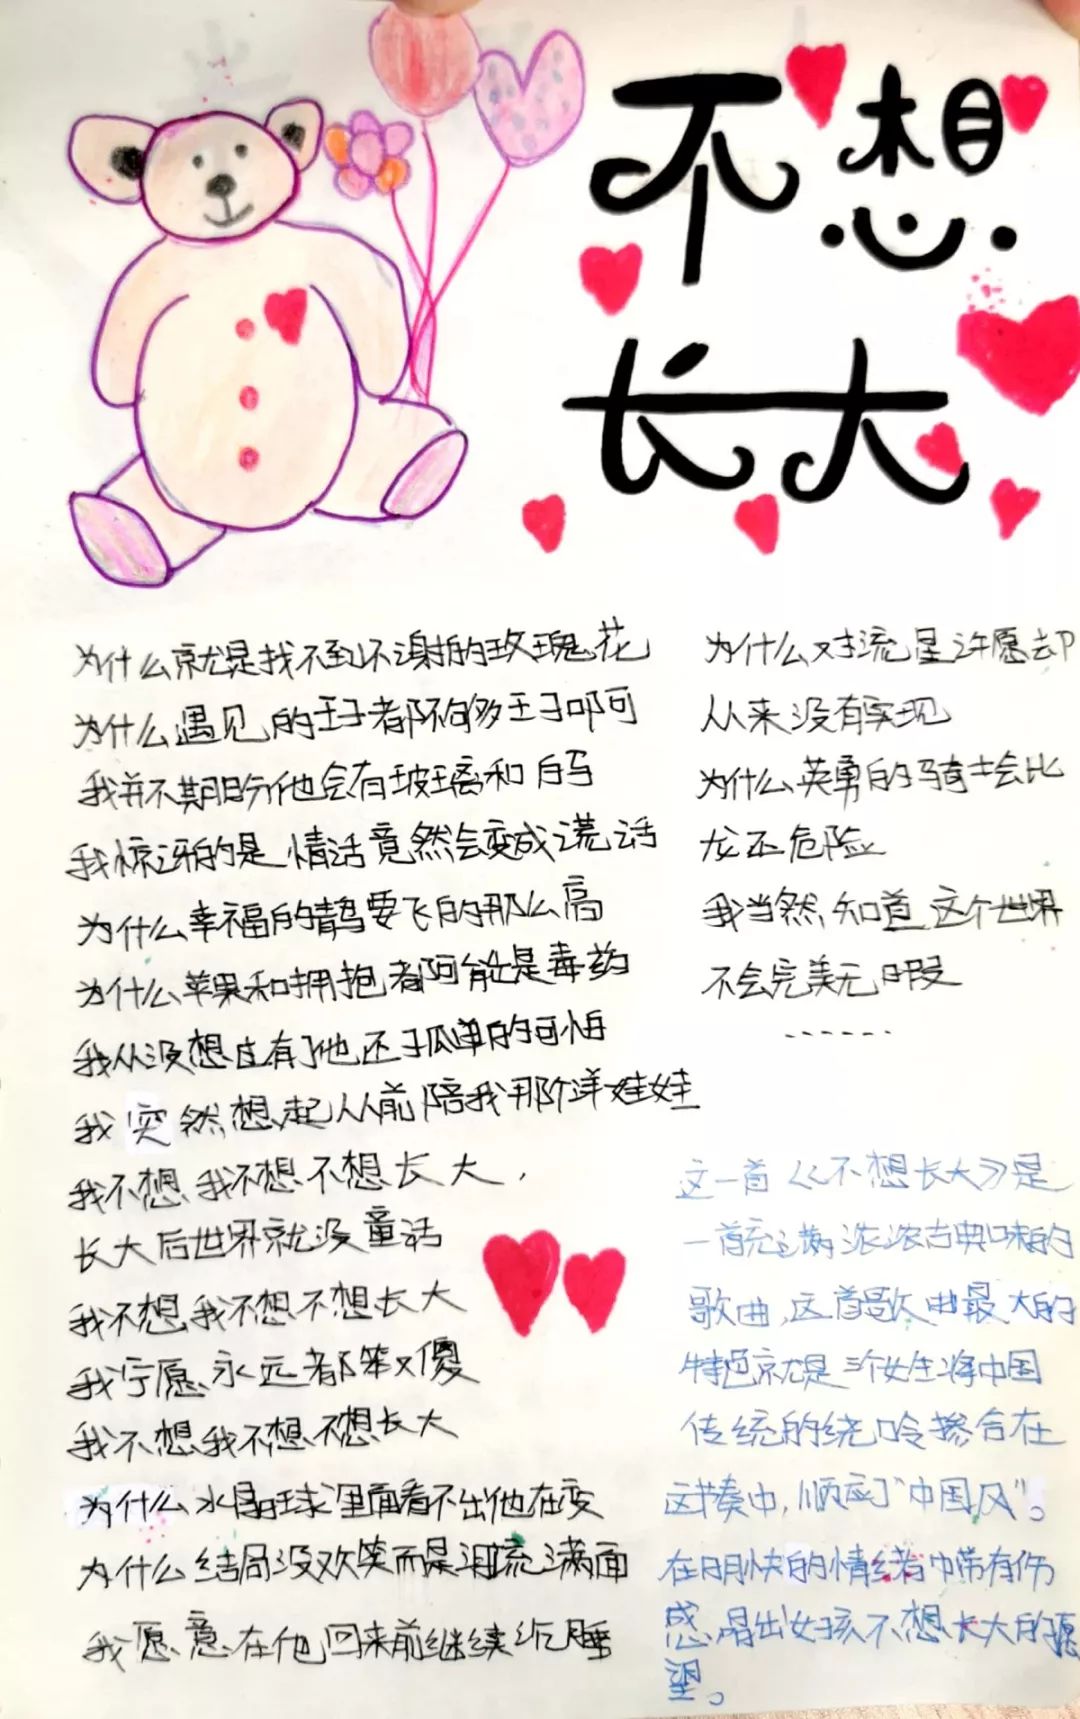 不想
长大
为什么就是找不到不谢的玫瑰花
为什么遇见的王子都不够王子啊
我并不期盼他会有玻璃和白马
我惊讶的是情话竟然会变成谎话
为什么幸福的青鸟要飞的那么高
为什么苹果和拥抱都可能是毒药
我从没想过有了他还孤单的可怕
我突然想起从前陪我那个洋娃娃
我不想我不想不想长大，
长大后世界就没童话
我不想我不想不想长大
我宁愿永远都笨又傻
我不想我不想不想长大
为什么水晶球里面看不出他在变
为什么结局没欢笑而是泪流满面
我愿意在他回来前继续沉睡
为什么对流星许愿却
从来没有实现
为什么英勇的骑士会比
龙还危险
我当然知道这个世界
不会完美无暇
······
这一首《不想长大》是
一首充满浓浓古典味的
歌曲,这首歌曲最大的
特色就是三个女生将中国
传统的绕口令掺合在
这节奏中,顺应了“中国风”。
在明快的情绪中带有伤
感,唱出女孩不想长大的愿
望。